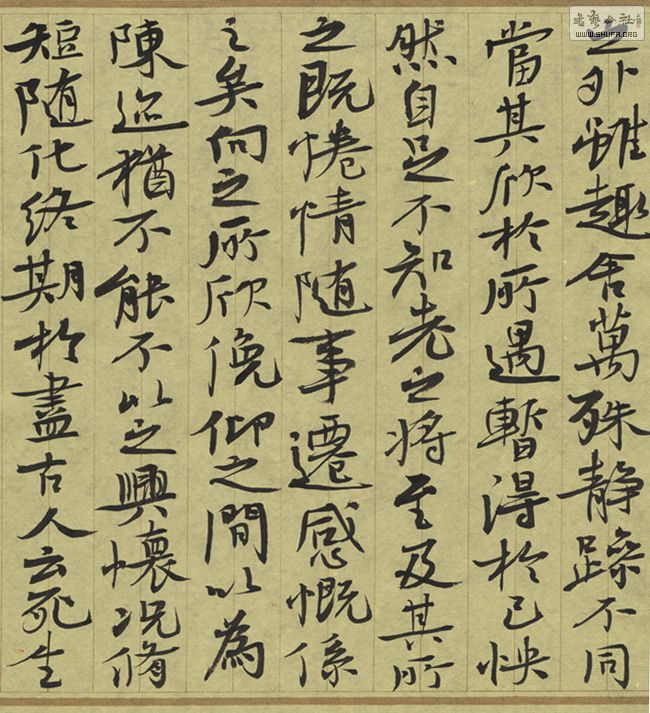 之外雖趣舍萬殊静躁不同
當其欣扵所遇暫得扵己怏
然自足不知老之将至及其所
之既惓情隨事遷感慨係
之矣向之所欣俛仰之間以為
陳迹猶不能不以之興懷况脩
短随化終期扵盡古人云死生
WWW.SHUFA.ORG